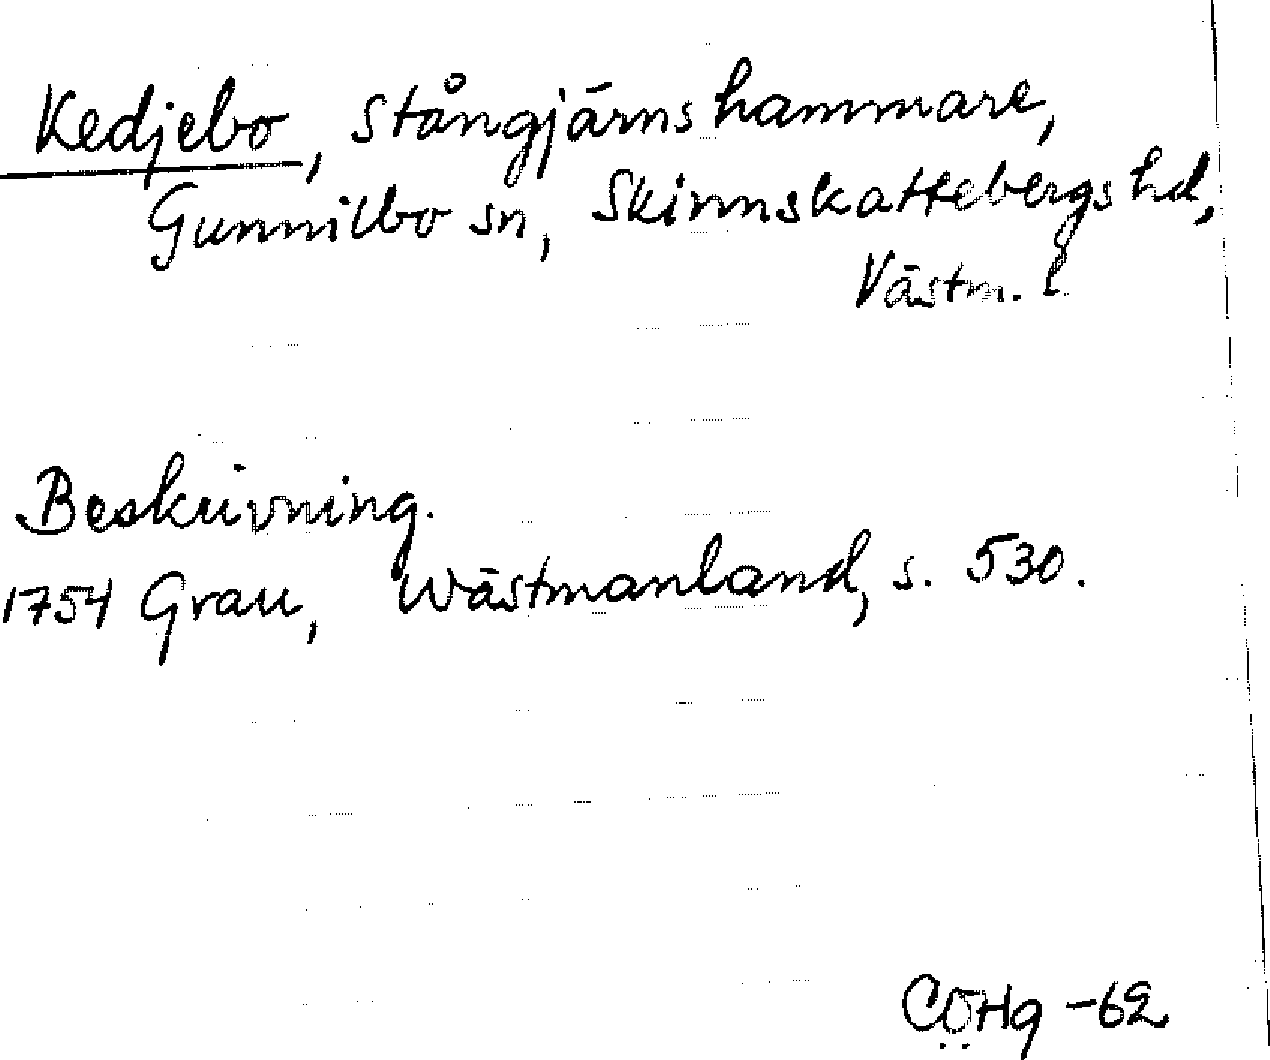 Kedjebo, Stångjärnshammare,
Gunnilbo sn, Skinnskattebergs hd,
Västm. l.
Beskrivning.
1754 Grau, Wästmanland, s. 530.
CÖHg -62